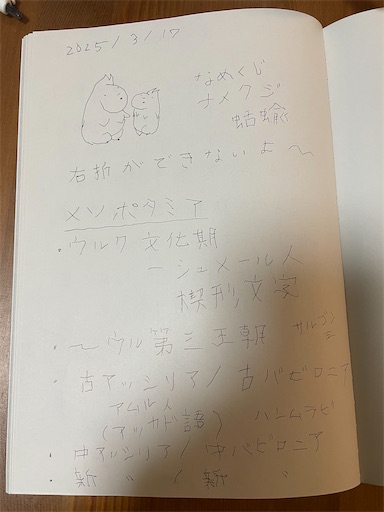 2025/3/17
なめくじ
ナメクジ
蛞蝓
右折ができないよ〜
メソポタミア
・ウルク文化期
ーシュメール人
楔形文字
・〜ウル第三王朝 サルゴン
・古アッシリア/古バビロニア
アムル人
(アッカド語) ハンムラビ
・中アッシリア/中バビロニア
・新 〃 / 新 〃